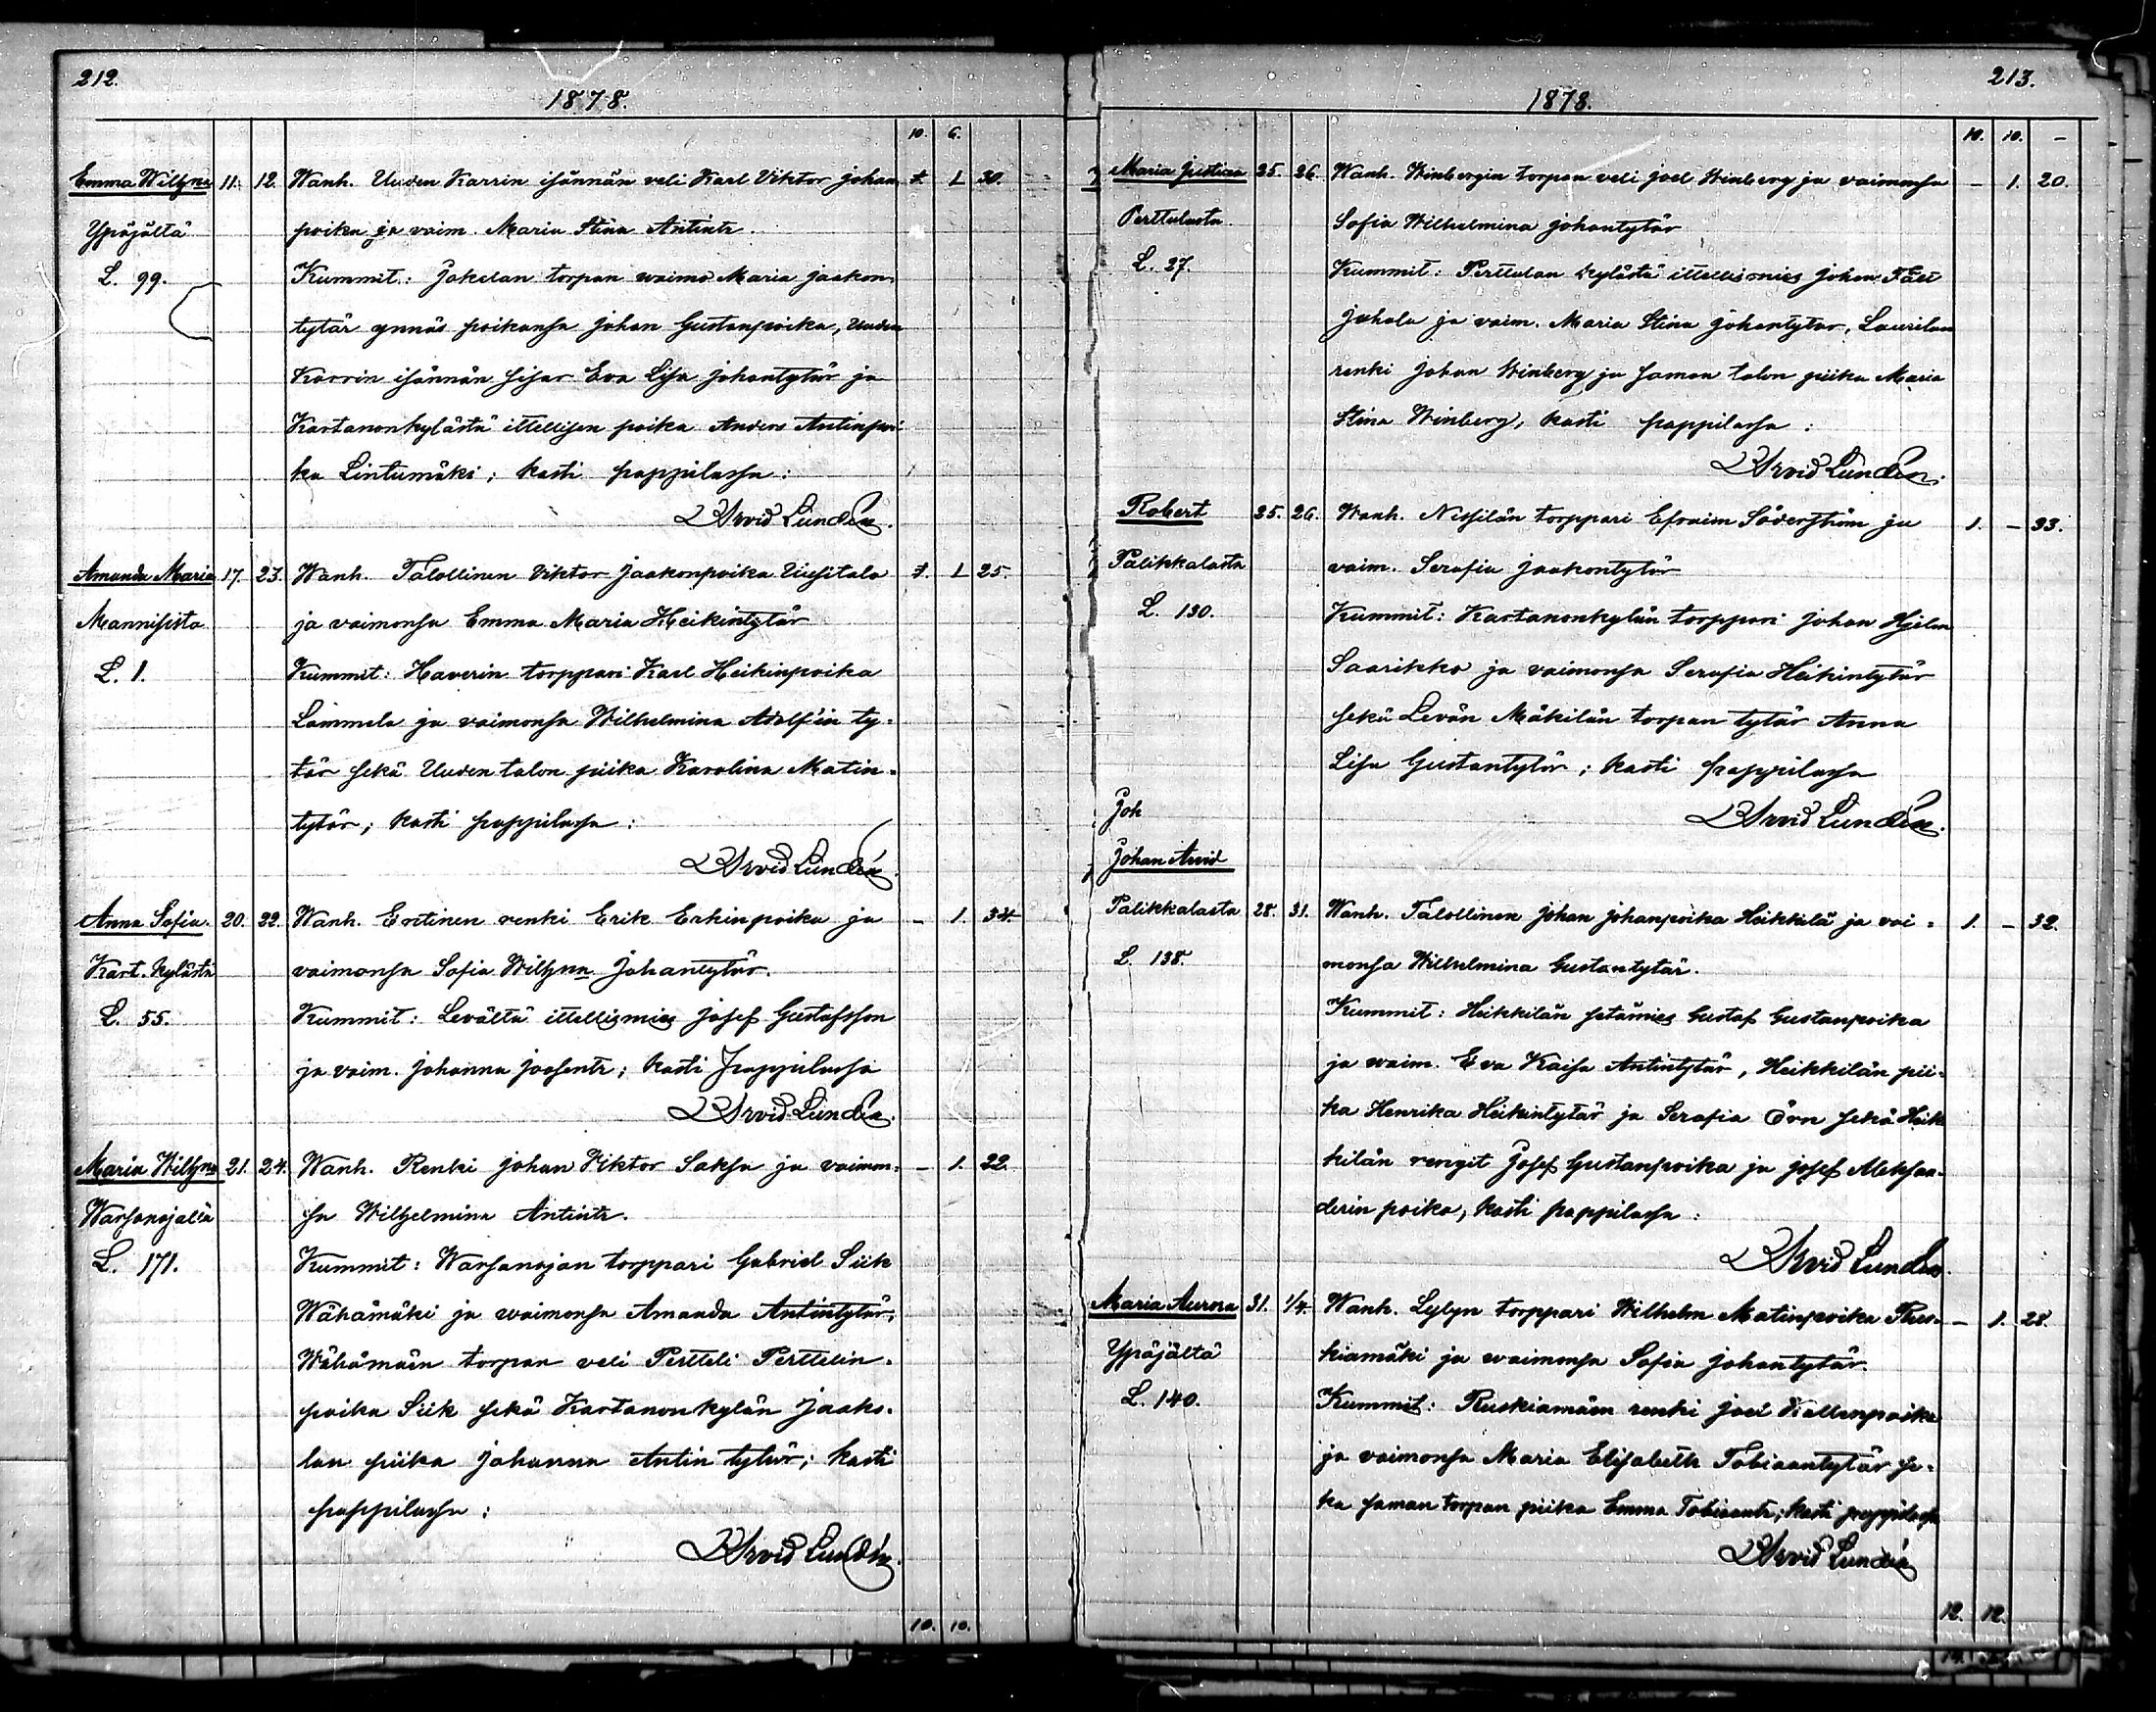 212.
1878.
10. 6.
Emma Wilhna 11. 12. Wanh. Uuden Karrin isännän veli Karl Viktor Johan 1. 30.
Ypäjältä poika ja vaim. Maria Stina Antintr.
L. 99. Kummit: Jokelan torpan waimo Maria Jaakon-
tytär ynnäs poikansa Johan Gustanpoika, Uuden
Karrin isännän sisar Eva Lisa Johantytär ja
Kartanonkylästä ittellisen poika Anders Antinpoi
ka Lintumäki; kasti pappilassa:
Arvid Lundén.
Amanda Maria 17. 23. Wanh. Talollinen Viktor Jaakonpoika Uusitalo 1 25.
Mannisista ja vaimonsa Emma Maria Heikintytär
L. 1. Kummit: Haverin torppari Karl Heikinpoika
Lammela ja vaimonsa Wilhelmina Adolf'in ty-
tär sekä Uudentalon piika Karolina Matin-
tytär; kasti pappilassa:
Arvid Lundén.
Anna Sofia. 20. 22. Wanh. Entinen renki Erik Erkinpoika ja - 1. 34.
Kart. kylästä vaimonsa Sofia Wilhna Johantytär.
L. 55. Kummit: Levältä ittellismies Josef Gustafsson
ja vaim. Johanna Joosentr; kasti pappilassa
Arvid Lundén.
Maria Wilhna 21. 24. Wanh. Renki Johan Viktor Saksa ja vaimon- - 1. 22.
Warsanojalta sa Wilhelmina Antintr.
L. 171. Kummit: Warsanojan torppari Gabriel Siik
Wähämäki ja waimonsa Amanda Antintytär,
Wähämäen torpan veli Pertteli Perttelin-
poika Siik sekä Kartanonkylän Jaako-
lan piika Johanna Antin tytär; kasti
pappilassa:
Arvid Lundén.
10. 10.
213.
1878.
10. 10. -
Maria Justina 25. 26. Wanh. Winbergin torpan veli Joel Winberg ja vaimonsa - 1. 20.
Perttulasta Sofia Wilhelmina Johantytär
L. 27. Kummit: Perttulan kylästä ittellismies Johan Fält
Johola ja vaim. Maria Stina Johantytär, Laurilan
renki Johan Winberg ja saman talon piika Maria
Stina Winberg; kasti pappilassa:
Arvid Lundén.
Robert 25. 26. Wanh. Nissilän torppari Efraim Söderström ja 1. - 33.
Palikkalasta vaim. Serafia Jaakontytär
L. 130. Kummit: Kartanonkylän torppari Johan Hjelm
Saarikko ja vaimonsa Serafia Heikintytär
sekä Levän Mäkilän torpan tytär Anna
Lisa Gustantytär; kasti pappilassa
Joh Arvid Lundén.
Johan Arvid
Palikkalasta 28. 31. Wanh. Talollinen Johan Johanpoika Heikkilä ja vai- 1. - 32.
L. 138. monsa Wilhelmina Gustantytär.
Kummit: Heikkilän setämies Gustaf Gustanpoika
ja waim. Eva Kaisa Antintytär, Heikkilän pii-
ka Henrika Heikintytär ja Serafia Örn sekä Heik
kilän rengit Josef Gustanpoika ja Josef Aleksan-
derin poika, kasti pappilassa:
Arvid Lundén.
Maria Aurora 31. 1/4. Wanh. Lylyn torppari Wilhelm Matinpoika Rus- - 1. 28.
Ypäjältä kiamäki ja waimonsa Sofia Johantytär.
L. 140. Kummit: Ruskiamäen renki Joel Kallenpoika
ja vaimonsa Maria Elisabeth Tobiaantytär se-
kä saman torpan piika Emma Tobiaantr; kasti pappilassa
Arvid Lundén
12. 12.